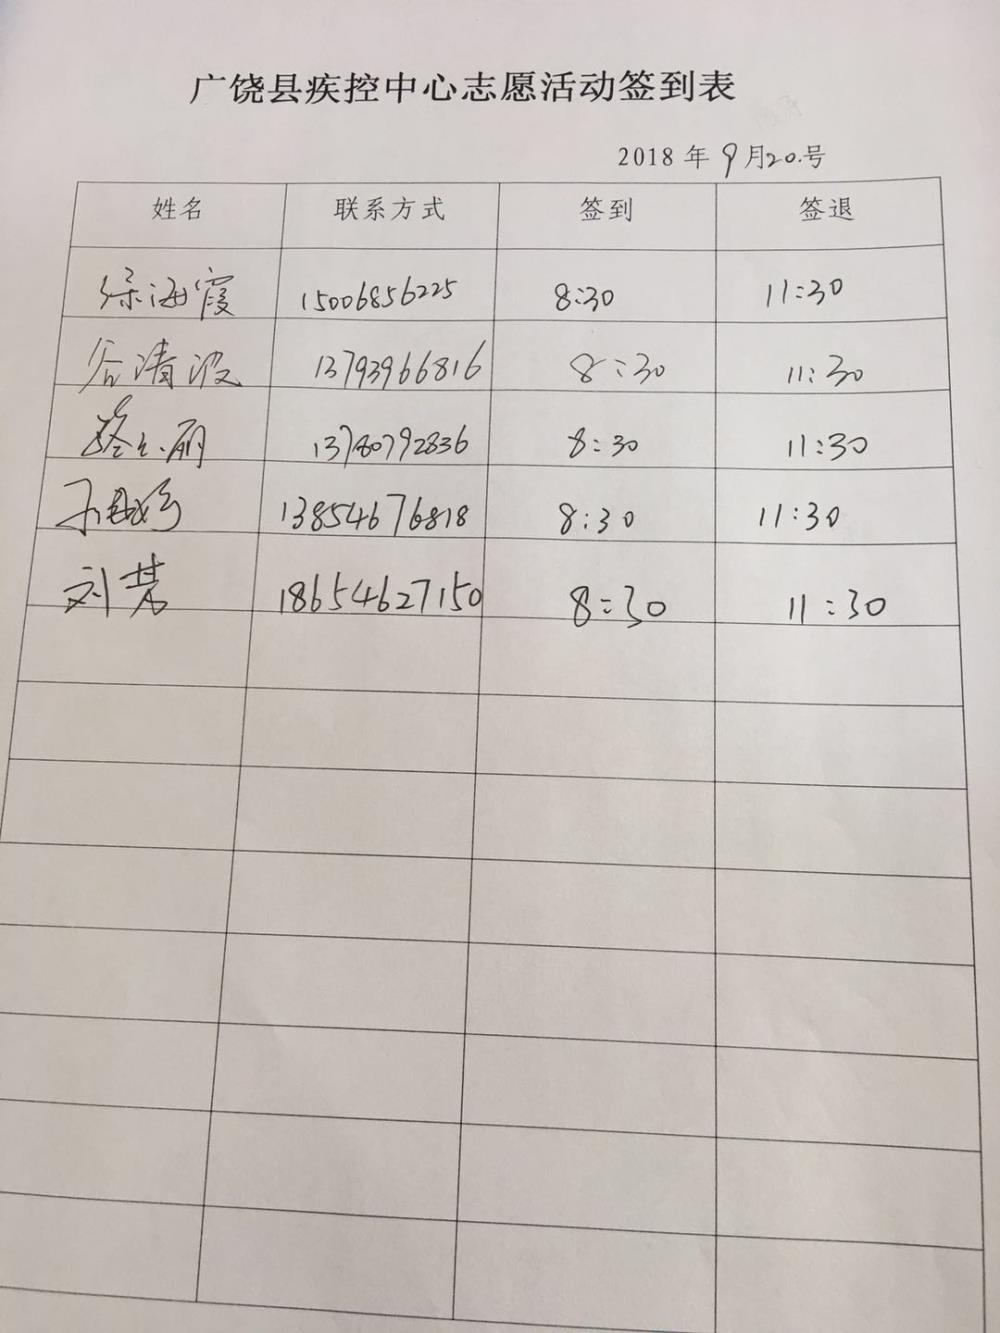 广饶县疾控中心志愿活动签到表
2018 年 9 月20.号
姓名 联系方式 签到 签退
徐海霞 15006856225 8:30 11:30
谷清波 13793966816 8:30 11:30
13780792836 8:30 11:30
13854676818 8:30 11:30
刘慧 18654627150 8:30 11:30